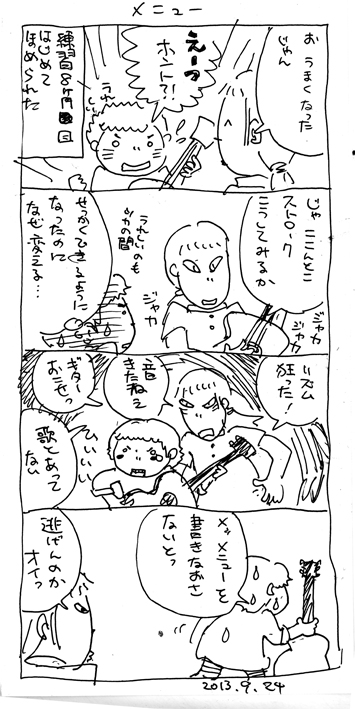 メニュー
お うまくなった
じゃん
えーっ
ホント?!
うれしい
練習8ケ月目
はじめて
ほめられた
じゃ ここんとこ
ストローク
こうしてみるか
ジャカ
ジャカ
ジャカ
ジャカ
うれしいのも
つかの間
せっかくできるように
なったのに
なぜ変える…
リズム
狂った!
音
きたねえ
ギター
おこせっ
ひぃぃぃぃ
歌とあって
ない
メ、メニューを
書きなおさ
ないとっ
逃げんのか
オイっ
2013.9.24